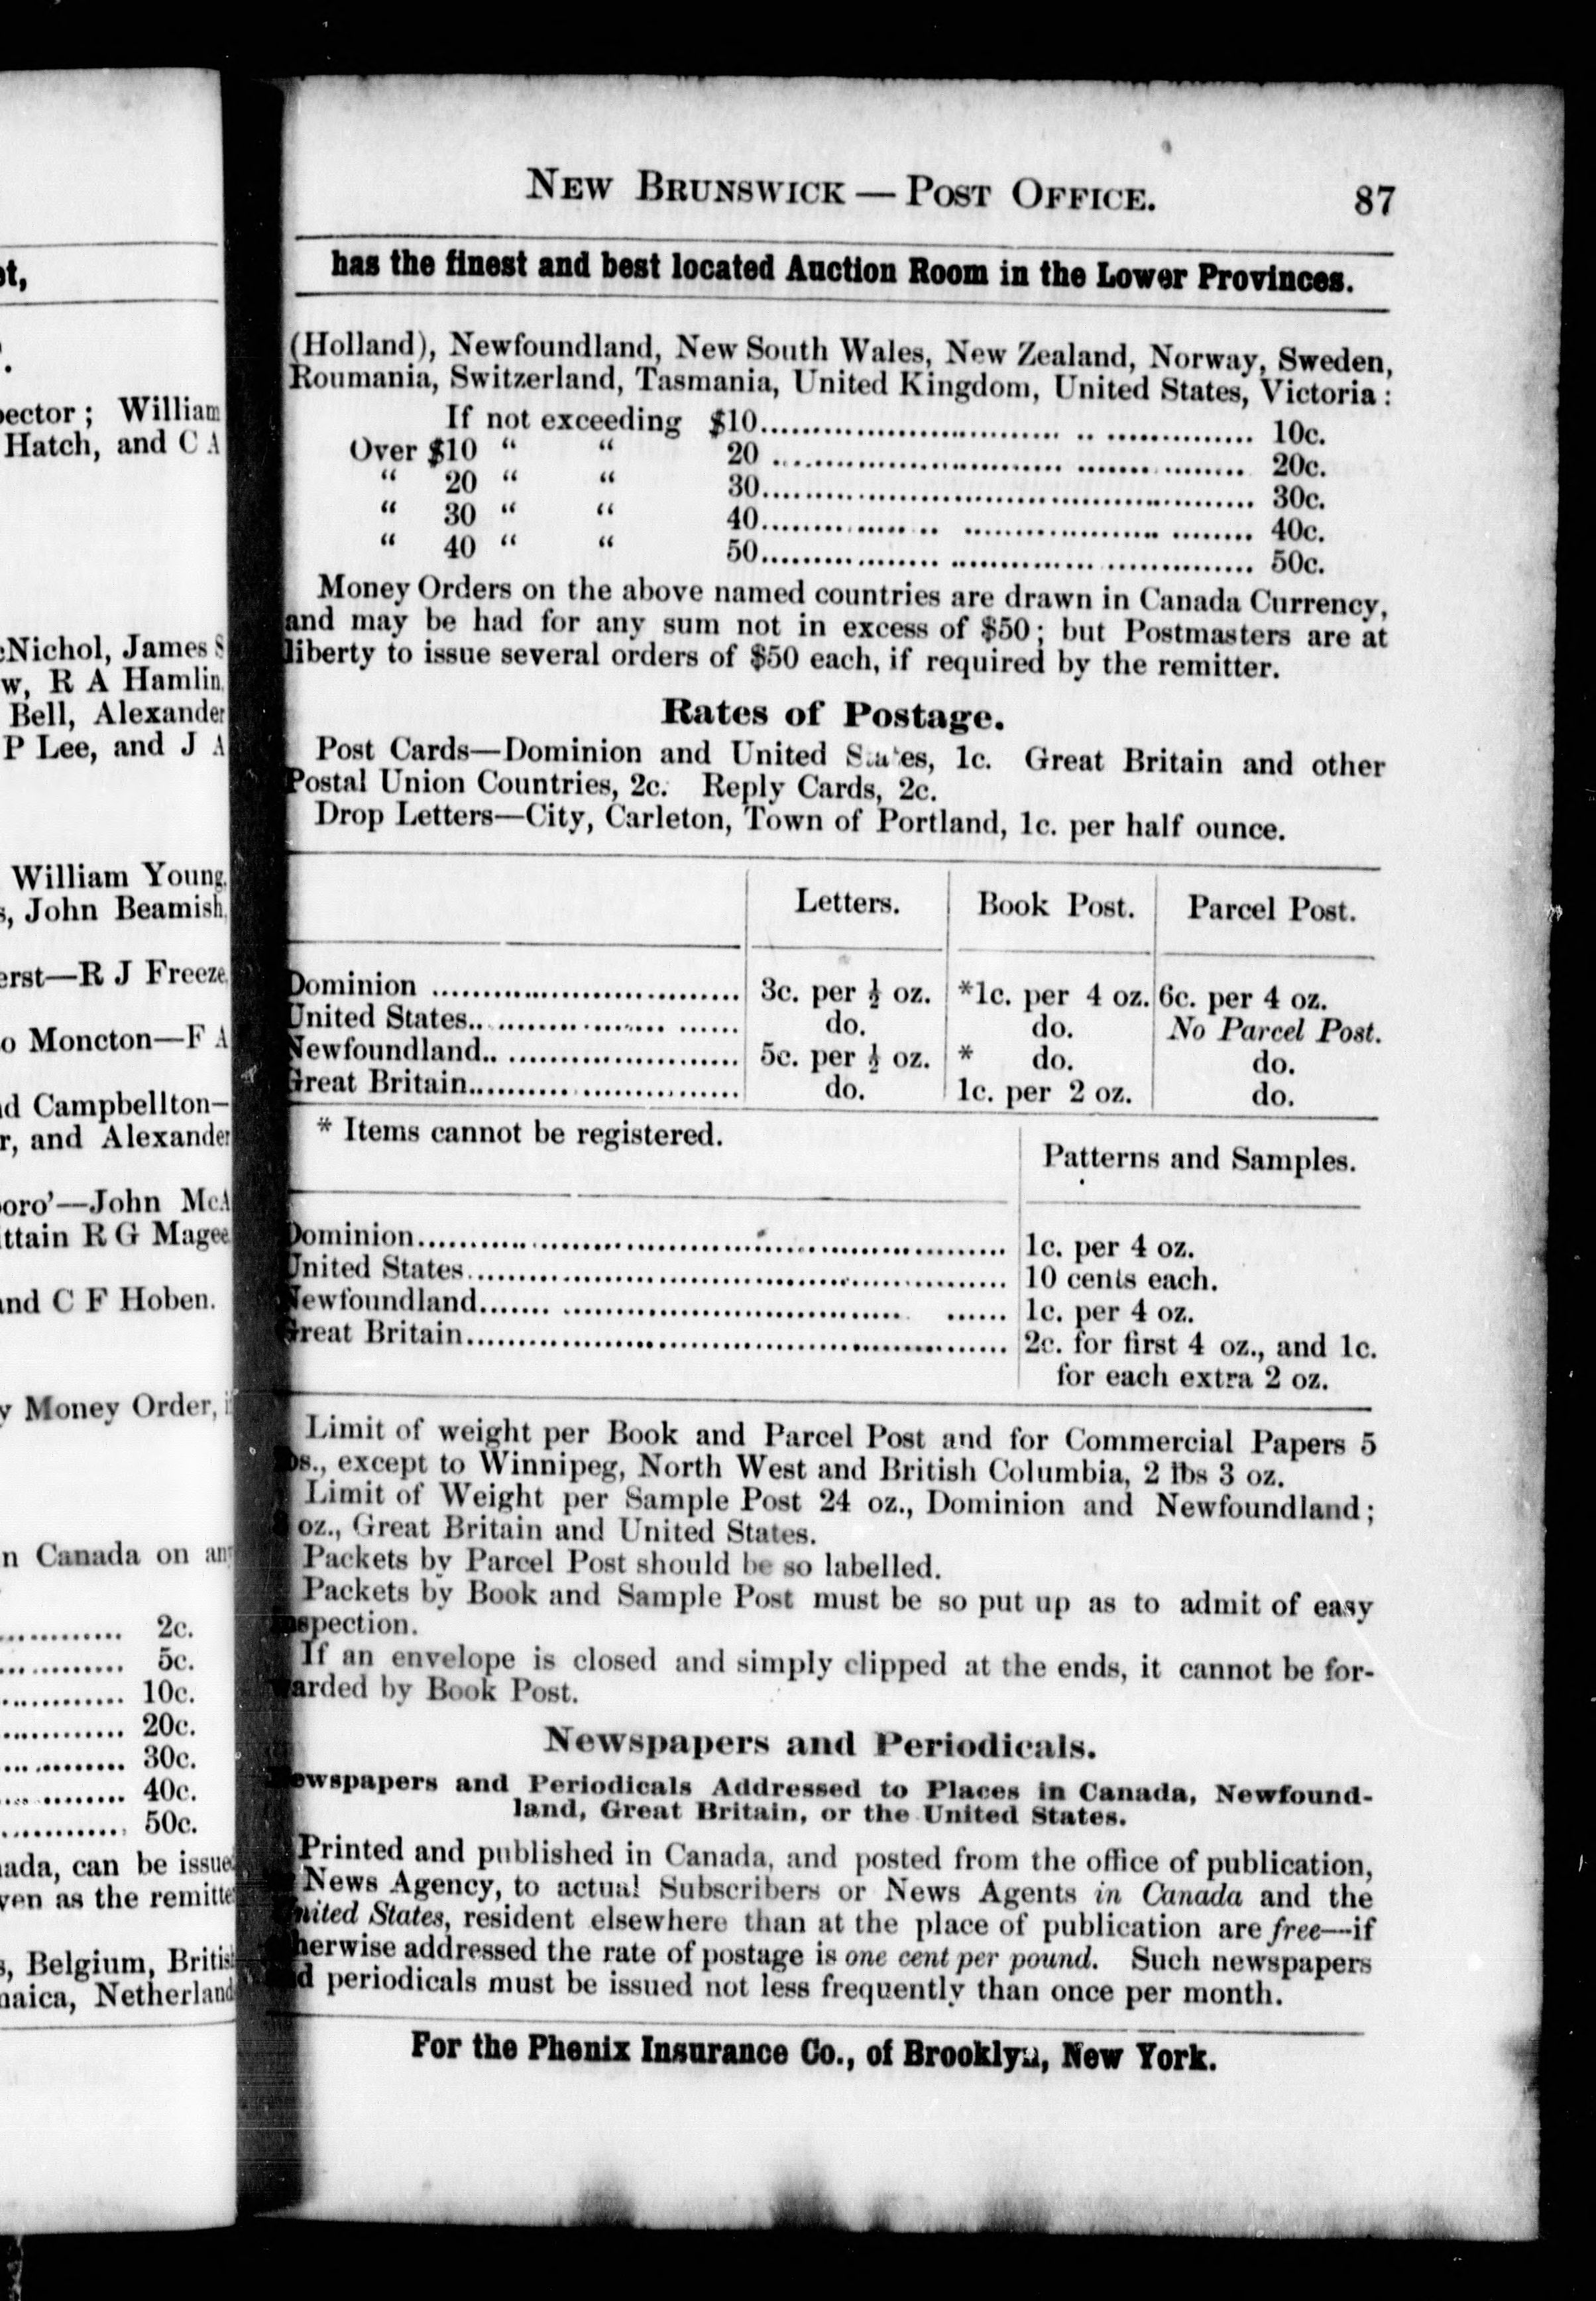 et,
pector; William
Hatch, and C A
cNichol, James S
w, R A Hamlin,
Bell, Alexander
P Lee, and J A
William Young,
s, John Beamish,
erst—R J Freeze,
o Moncton—F A
nd Campbellton—
r, and Alexander
boro'—John McA
ittain R G Magee
and C F Hoben.
y Money Order, i
n Canada on any
............ 2c.
............ 5c.
............ 10c.
............ 20c.
............ 30c.
............ 40c.
............ 50c.
nada, can be issue
ven as the remitte
s, Belgium, Britis
maica, Netherland
NEW BRUNSWICK — POST OFFICE. 87
has the finest and best located Auction Room in the Lower Provinces.
(Holland), Newfoundland, New South Wales, New Zealand, Norway, Sweden,
Roumania, Switzerland, Tasmania, United Kingdom, United States, Victoria:
If not exceeding $10............................................... 10c.
Over $10 “ “ 20 ............................................... 20c.
“ 20 “ “ 30............................................... 30c.
“ 30 “ “ 40............................................... 40c.
“ 40 “ “ 50............................................... 50c.
Money Orders on the above named countries are drawn in Canada Currency,
and may be had for any sum not in excess of $50; but Postmasters are at
liberty to issue several orders of $50 each, if required by the remitter.
Rates of Postage.
Post Cards—Dominion and United States, 1c. Great Britain and other
Postal Union Countries, 2c. Reply Cards, 2c.
Drop Letters—City, Carleton, Town of Portland, 1c. per half ounce.
Letters. Book Post. Parcel Post.
Dominion .............................. 3c. per ½ oz. *1c. per 4 oz. 6c. per 4 oz.
United States.......................... do. do. No Parcel Post.
Newfoundland.......................... 5c. per ½ oz. * do. do.
Great Britain.......................... do. 1c. per 2 oz. do.
* Items cannot be registered.
Patterns and Samples.
Dominion........................................................ 1c. per 4 oz.
United States.................................................... 10 cents each.
Newfoundland.................................................... 1c. per 4 oz.
Great Britain.................................................... 2c. for first 4 oz., and 1c.
for each extra 2 oz.
Limit of weight per Book and Parcel Post and for Commercial Papers 5
bs., except to Winnipeg, North West and British Columbia, 2 lbs 3 oz.
Limit of Weight per Sample Post 24 oz., Dominion and Newfoundland;
oz., Great Britain and United States.
Packets by Parcel Post should be so labelled.
Packets by Book and Sample Post must be so put up as to admit of easy
nspection.
If an envelope is closed and simply clipped at the ends, it cannot be for-
warded by Book Post.
Newspapers and Periodicals.
ewspapers and Periodicals Addressed to Places in Canada, Newfound-
land, Great Britain, or the United States.
Printed and published in Canada, and posted from the office of publication,
News Agency, to actual Subscribers or News Agents in Canada and the
nited States, resident elsewhere than at the place of publication are free—if
herwise addressed the rate of postage is one cent per pound. Such newspapers
d periodicals must be issued not less frequently than once per month.
For the Phenix Insurance Co., of Brooklyn, New York.